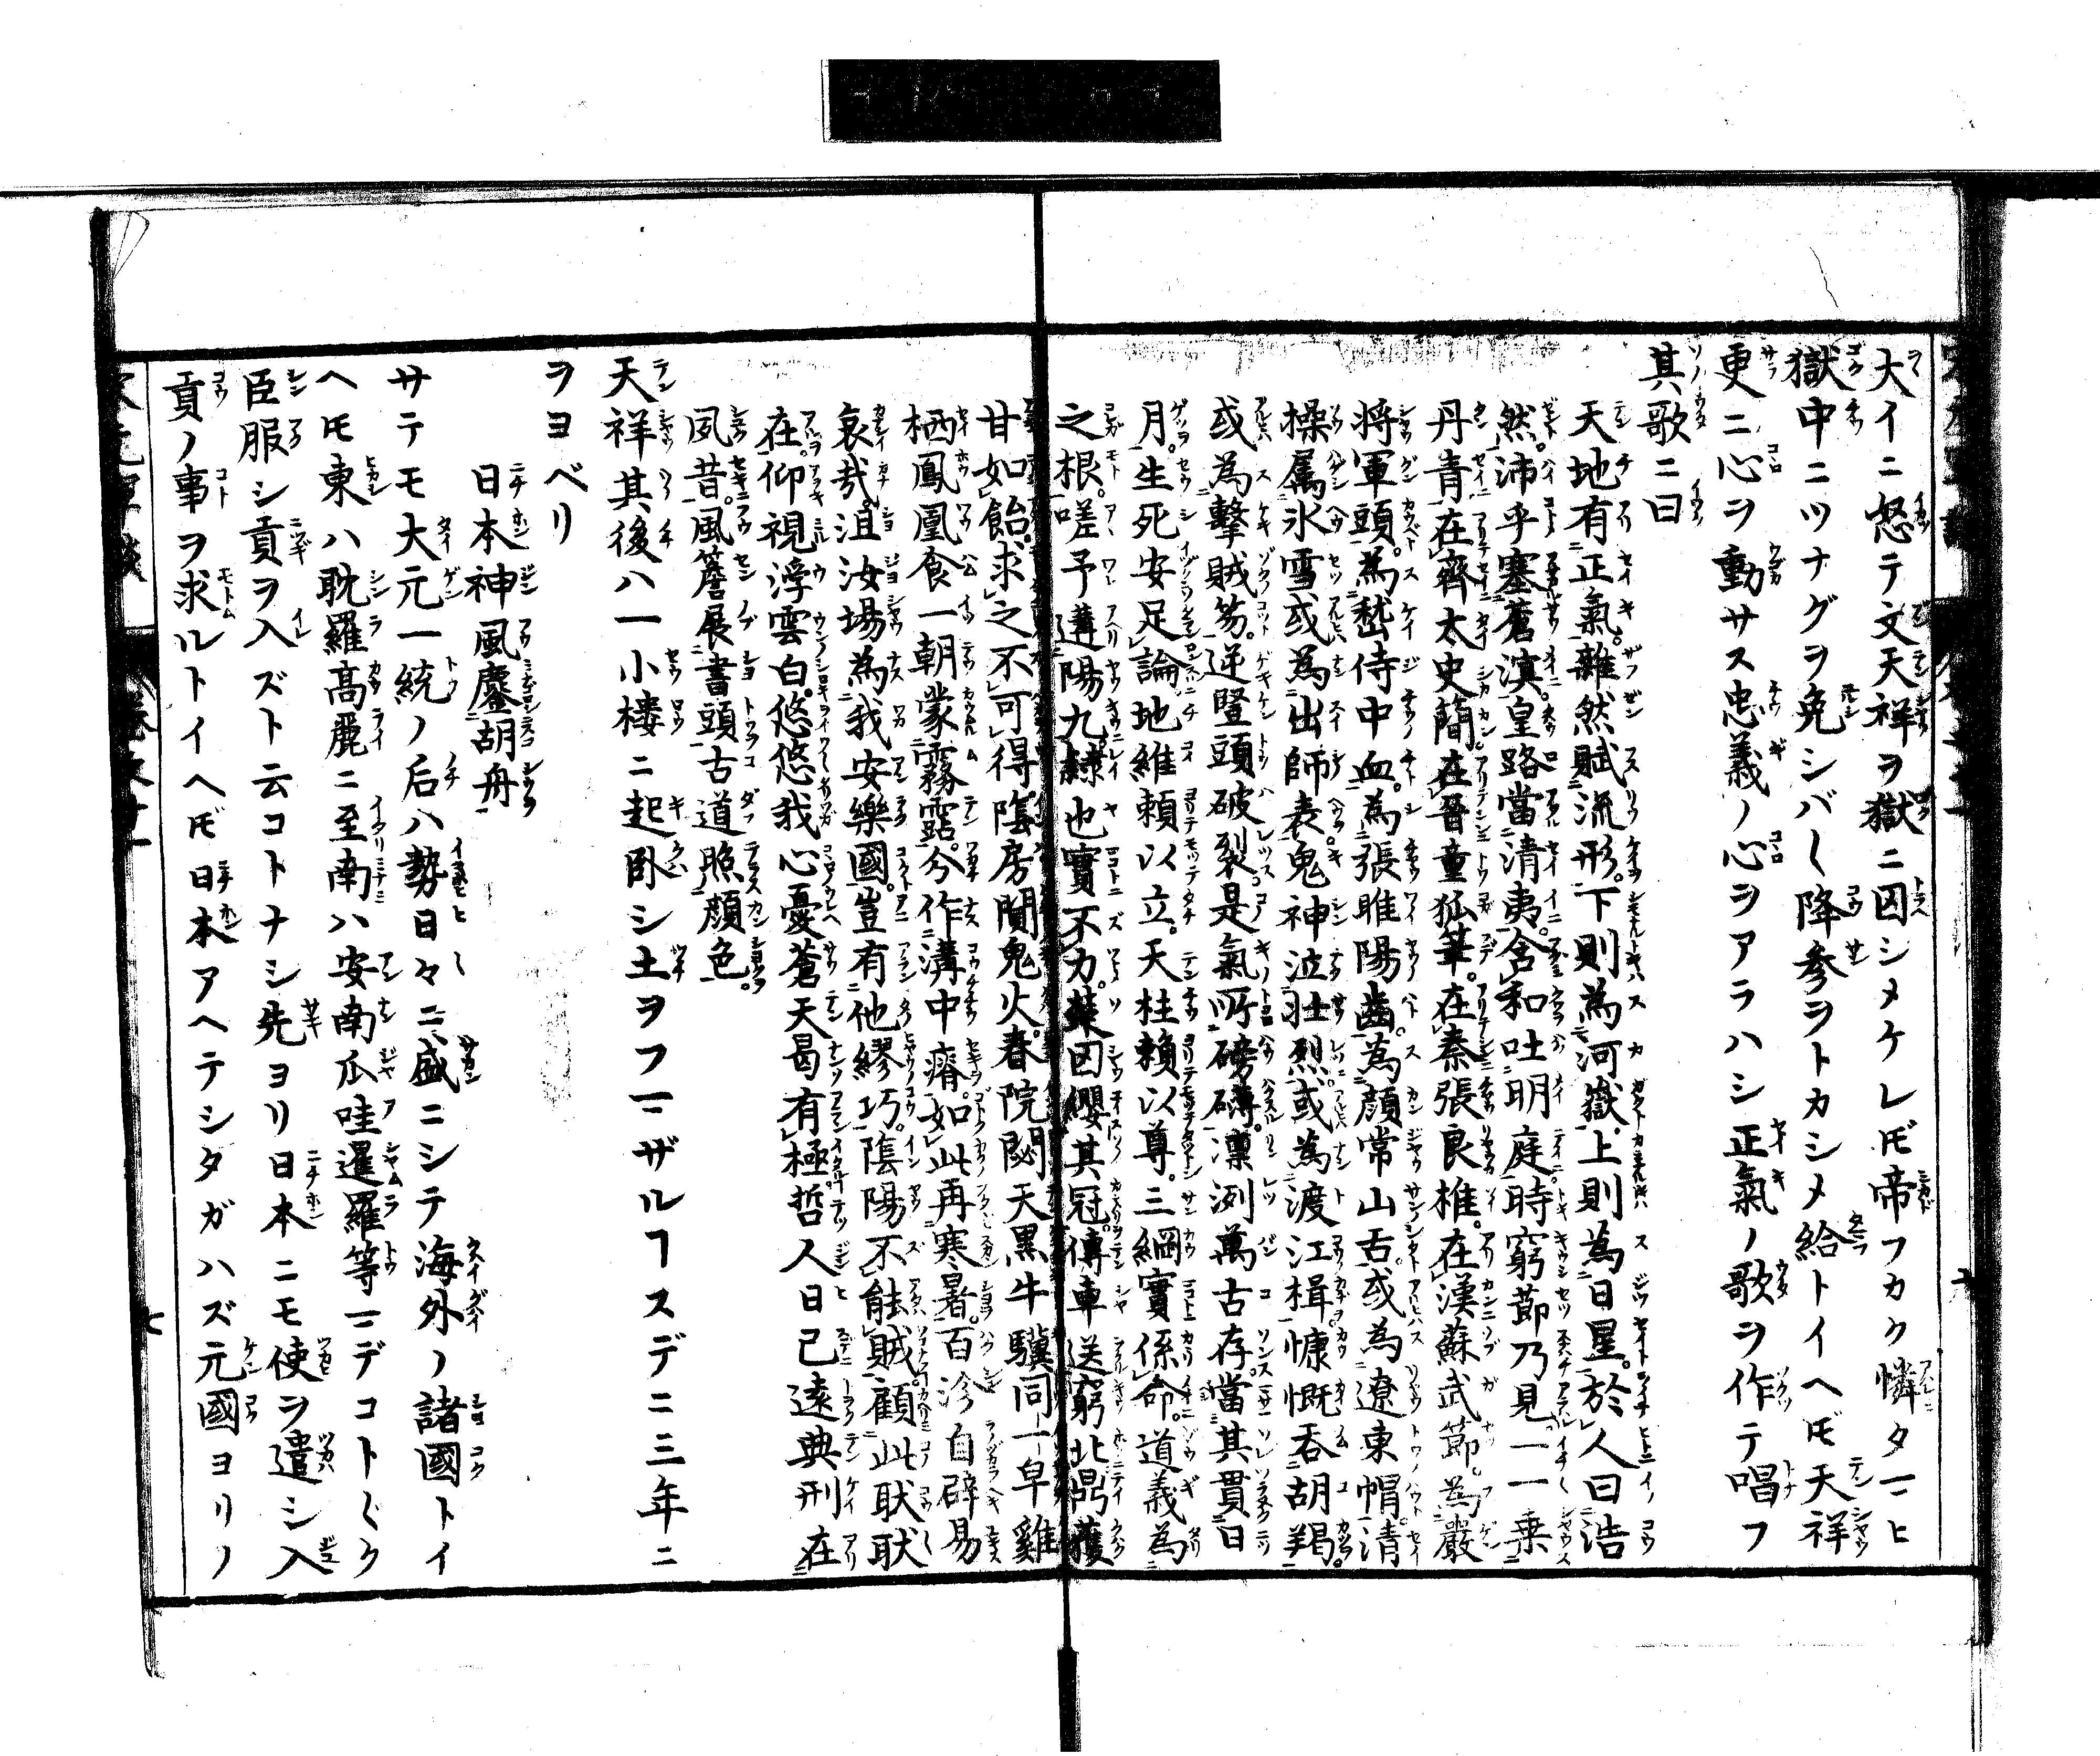 大イニ怒テ文天祥ヲ獄ニ囚シメケレ𪜈帝フカク憐タマヒ
獄中ニツナグヲ免シバ〱降参ヲトカシメ給トイヘ𪜈天祥
更ニ心ヲ動サス忠義ノ心ヲアラハシ正氣ノ歌ヲ作テ唱フ
其歌ニ曰
天地有正氣。雜然賦流形。下則為河嶽。上則為日星。於人曰浩
然。沛乎塞蒼溟。皇路當清夷。含和吐明庭。時窮節乃見。一一乗
丹青。在齊太史簡。在晋董狐筆。在秦張良椎。在漢蘇武節。為嚴
将軍頭。為嵆侍中血。為張睢陽齒。為顔常山舌。或為遼東帽。清
操厲氷雪。或為出師表。鬼神泣壮烈。或為渡江楫。慷慨吞胡羯。
或為擊賊笏。逆竪頭破裂。是氣所磅礴。凛冽萬古存。當其貫日
月。生死安足論。地維頼以立。天柱頼以尊。三綱實係命。道義為
之根。嗟予遘陽九。隷也實不力。楚囚纓其冠。傳車送窮北。鼎鑊
甘如飴。求之不可得。隂房闃鬼火。春院閟天黒。牛驥同一皁。雞
栖鳳凰食。一朝蒙霧露。分作溝中瘠。如此再寒暑。百沴自辟易
哀哉沮洳場。為我安樂國。豈有他繆巧。隂陽不能賊。顧此耿耿
在。仰視浮雲白。悠悠我心憂。蒼天曷有極。哲人日已遠。典刑在
夙昔。風簷展書頭。古道照顔色。
天祥其後ハ一小樓ニ起卧シ土ヲフマザルヿスデニ三年ニ
ヲヨベリ
日本神風鏖胡舟
サテモ大元一統ノ后ハ勢日々ニ盛ニシテ海外ノ諸國トイ
ヘ𪜈東ハ耽羅髙麗ニ至南ハ安南瓜哇暹羅等マデコト〲ク
臣服シ貢ヲ入ズト云コトナシ先ヨリ日本ニモ使ヲ遣シ入
貢ノ事ヲ求ルトイヘ𪜈日本アヘテシタガハズ元國ヨリノ